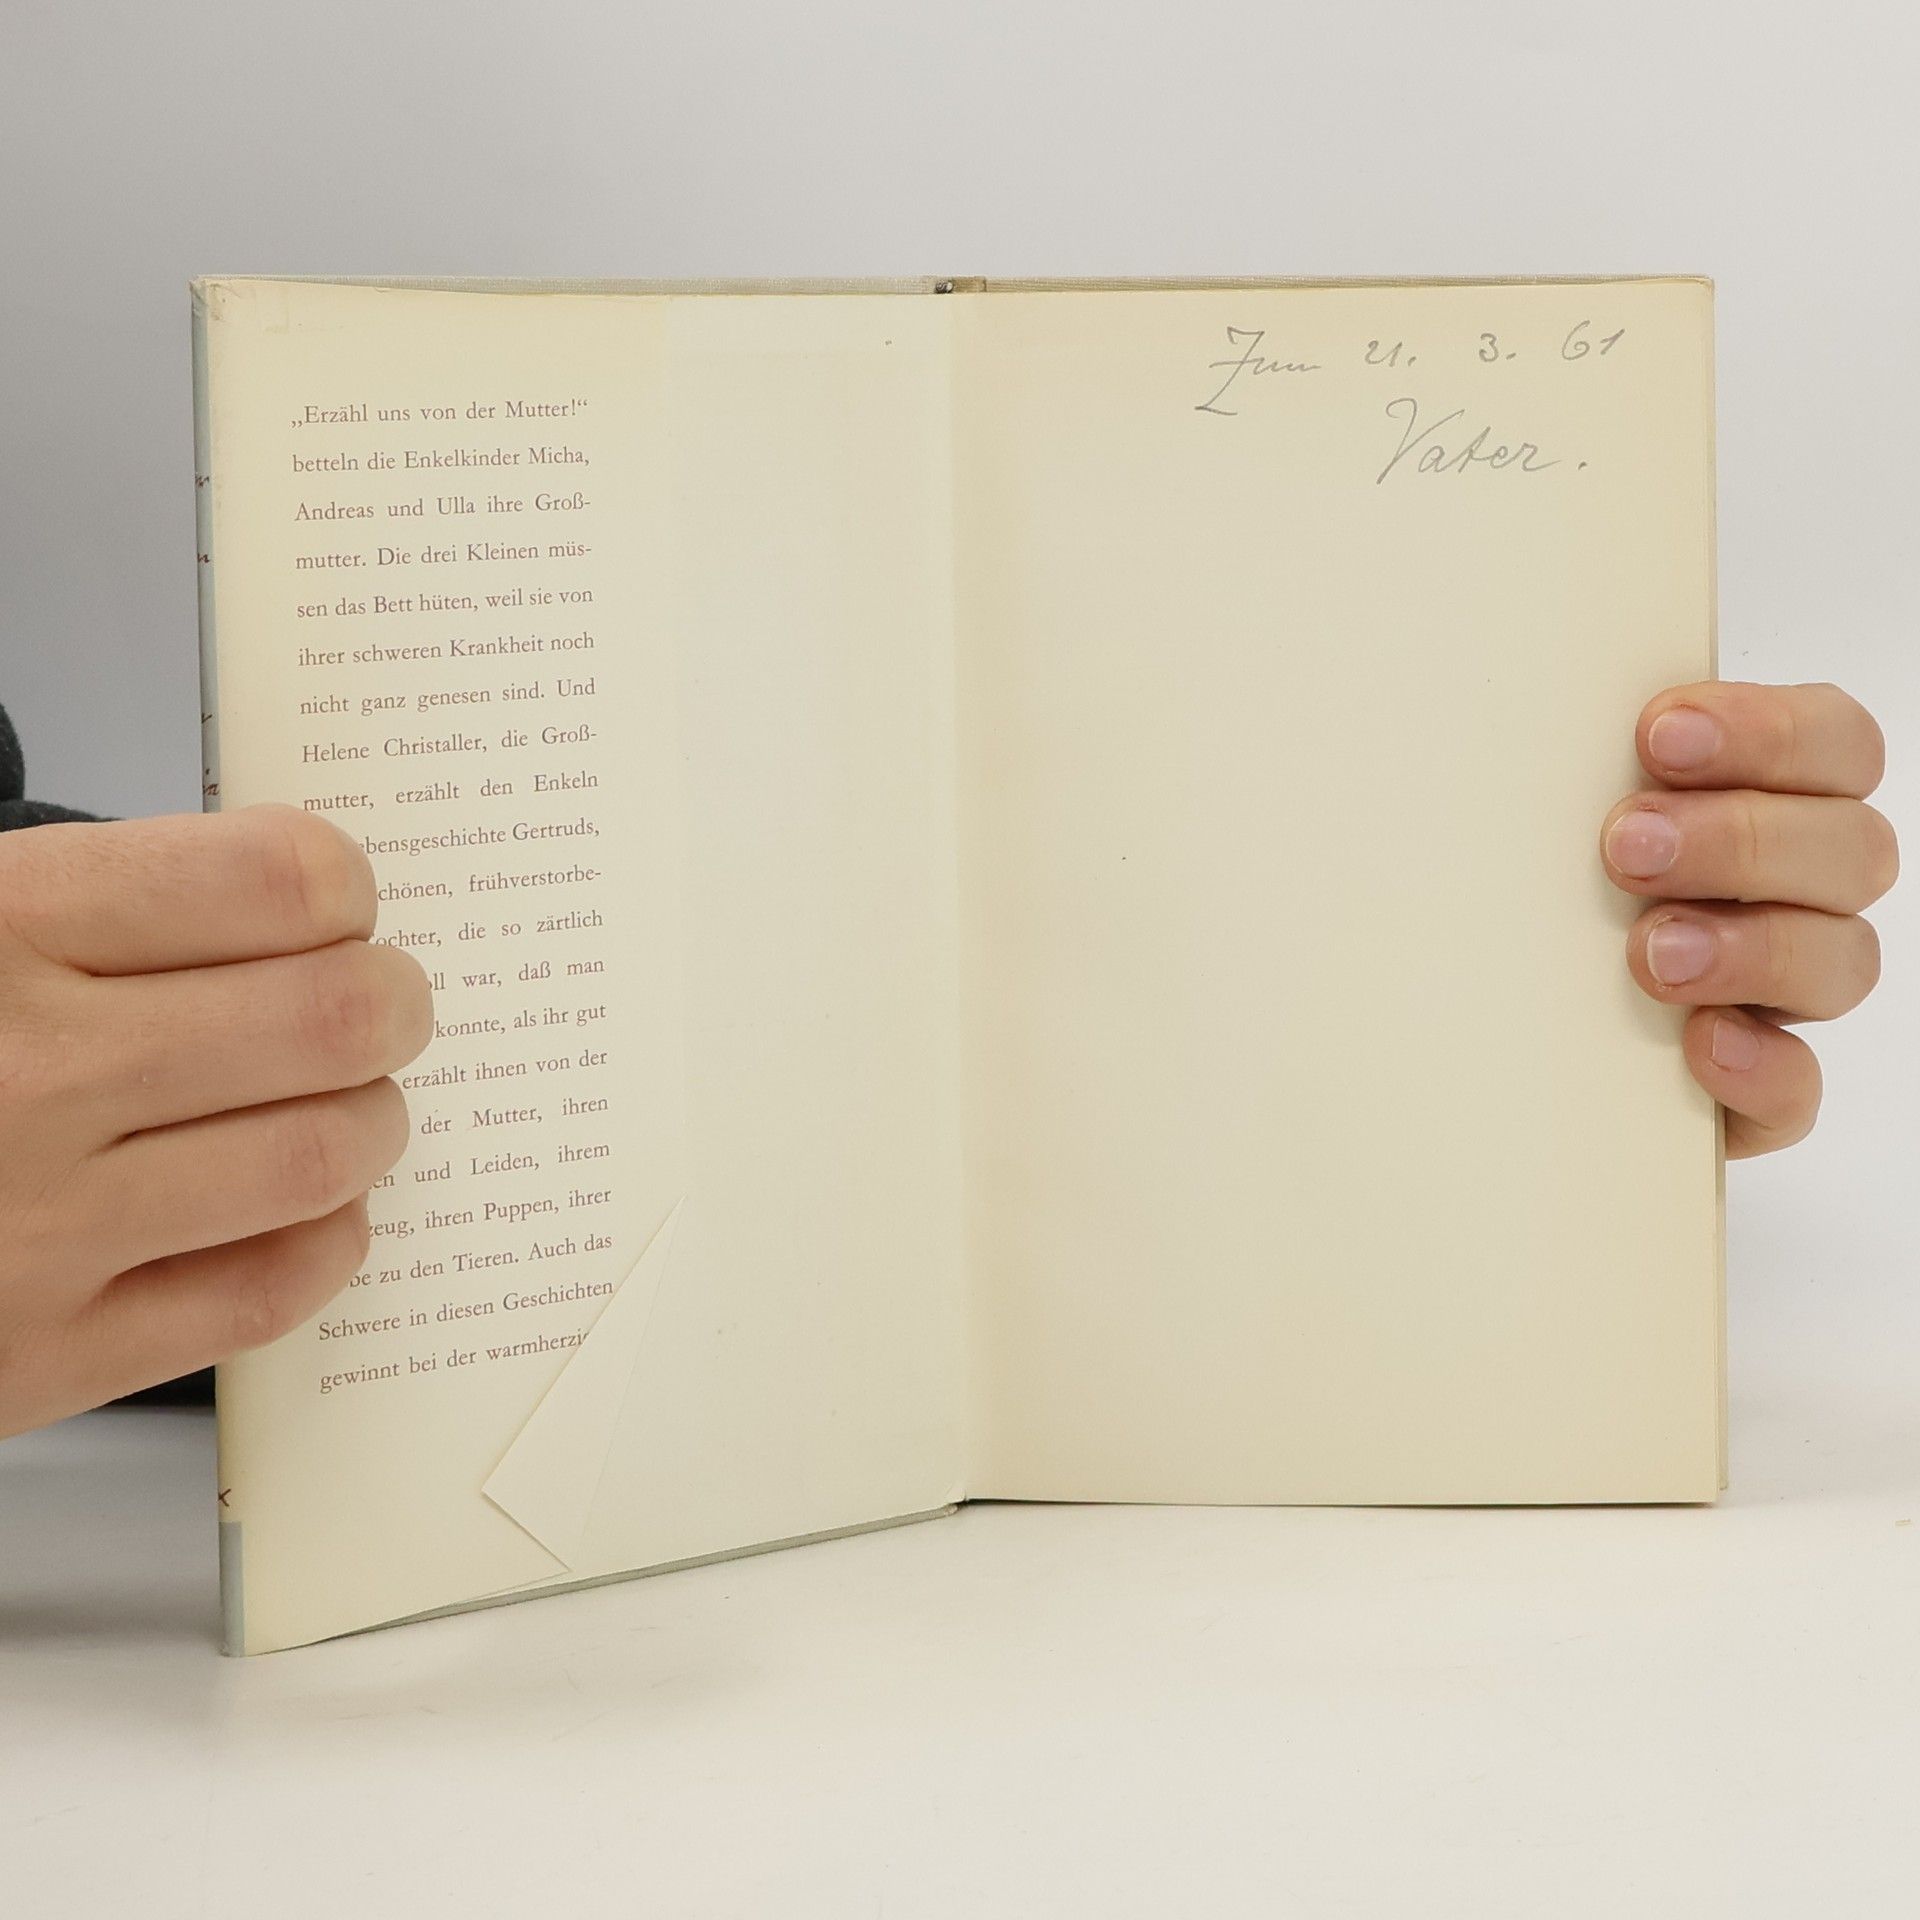 „Erzähl uns von der Mutter!“
betteln die Enkelkinder Micha,
Andreas und Ulla ihre Groß-
mutter. Die drei Kleinen müs-
sen das Bett hüten, weil sie von
ihrer schweren Krankheit noch
nicht ganz genesen sind. Und
Helene Christaller, die Groß-
mutter, erzählt den Enkeln
ebensgeschichte Gertruds,
chönen, frühverstorbe-
ochter, die so zärtlich
oll war, daß man
konnte, als ihr gut
erzählt ihnen von der
der Mutter, ihren
en und Leiden, ihrem
zeug, ihren Puppen, ihrer
be zu den Tieren. Auch das
Schwere in diesen Geschichten
gewinnt bei der warmherzi
Zum 21. 3. 61
Vater.